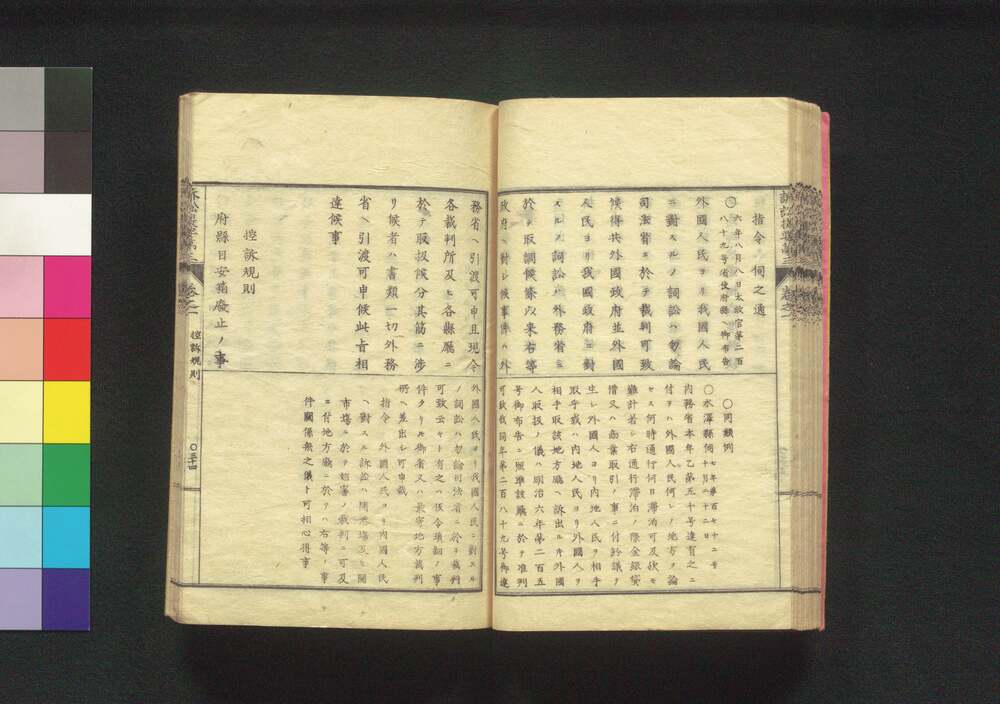 指令 伺之通
〇六年八月八日太政官第二百
八十九号省使府縣ヘ御布告
外國人民ヨリ我國人民
ニ對スルノ詞訟ハ勿論
司法省ニ於テ裁判可致
候得共外國政府並外國
人民ヨリ我國政府ニ對
スルノ詞訟ハ外務省ニ
於テ取調候條以来右等
政府ヘ對シ候事件ハ外
〇同類例
〇水澤縣伺 七年第百七十二号
十月二十二日
内務省本年乙第五十号達有之ニ
付テハ外國人民何レノ地方ヲ論
セス何時通行何日滞泊可及欤モ
難計若シ右通行滞泊ノ際金銀貸
借又ハ商業取引ノ事ニ付紛議ヲ
生シ外國人ヨリ内地人民ヲ相手
取乎或ハ内地人民ヨリ外國人ヲ
相手取該地方廳ヘ訴出ルモ外國
人取扱ノ儀ハ明治六年第二百五
号御布告ニ照準該廳ニ於テ准判
可致我同年第二百八十九号御達
務省ヘ引渡可申且現今
各裁判所及ヒ各縣廳ニ
於テ取扱候分其筋ニ涉
リ候者ハ書類一切外務
省ヘ引渡可申候此旨相
達候事
控訴規則
府縣目安箱廃止ノ事
外國人民ヨリ我國人民ニ對スル
ノ詞訟ハ勿論司法省ニ於テ裁判
可致云々ト有之ハ仮令瑣細ノ事
件タリトモ御省又ハ最寄地方裁判
所ヘ差出シ可申哉
指令 外國人民ヨリ内國人民
ヘ對スル訴訟ハ開港場及ヒ開
市場ニ於テ始審ノ裁判ニ可及
ニ付地方廳ニ於テハ右等ノ事
件關係無之儀ト可相心得事
卷之一
控訴規則
〇三十四
卷之一